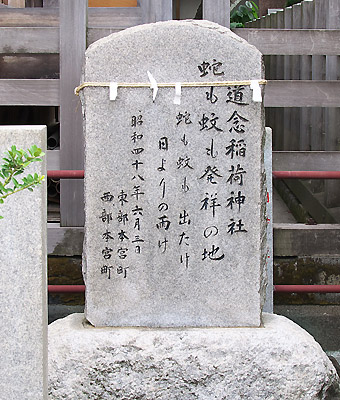 道念稲荷神社
蛇も蚊も発祥の地
蛇も蚊も出たけ
日よりの雨け
昭和四十八年六月三日
東部本宮町
西部本宮町